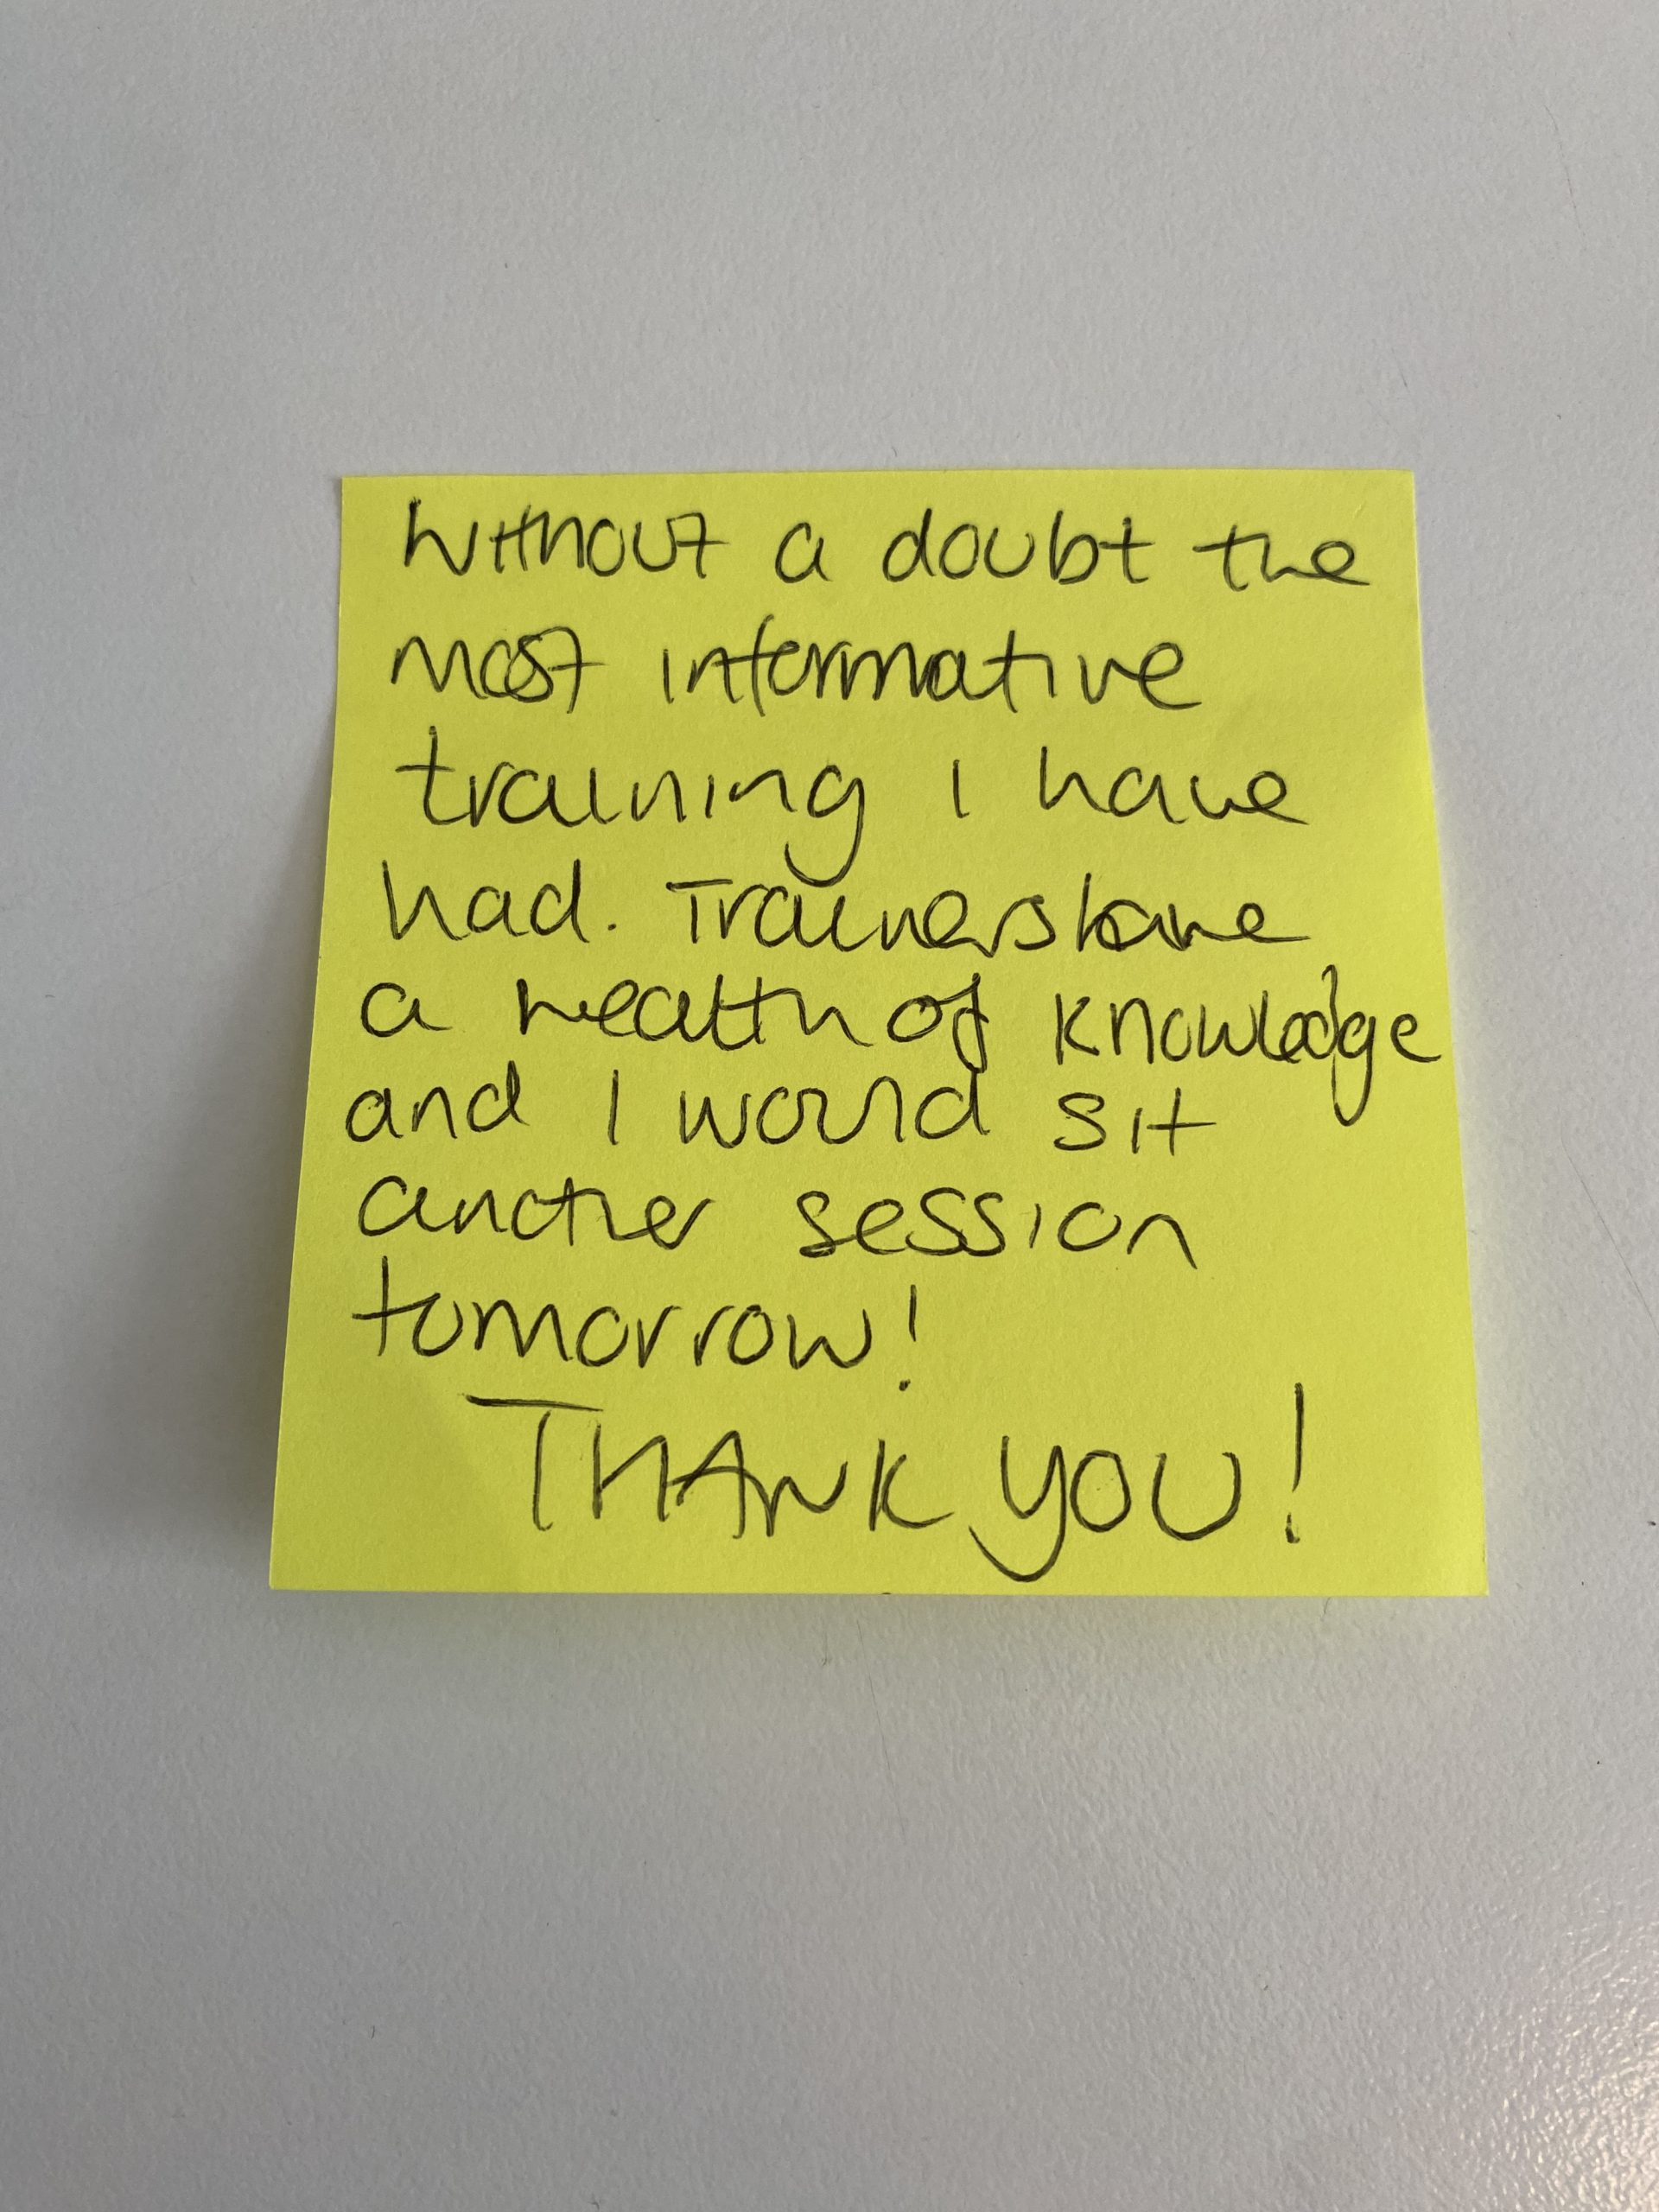 Without a doubt the
most informative
training I have
had. Trainers have
a wealth of knowledge
and I would sit
another session
tomorrow!
THANK YOU!